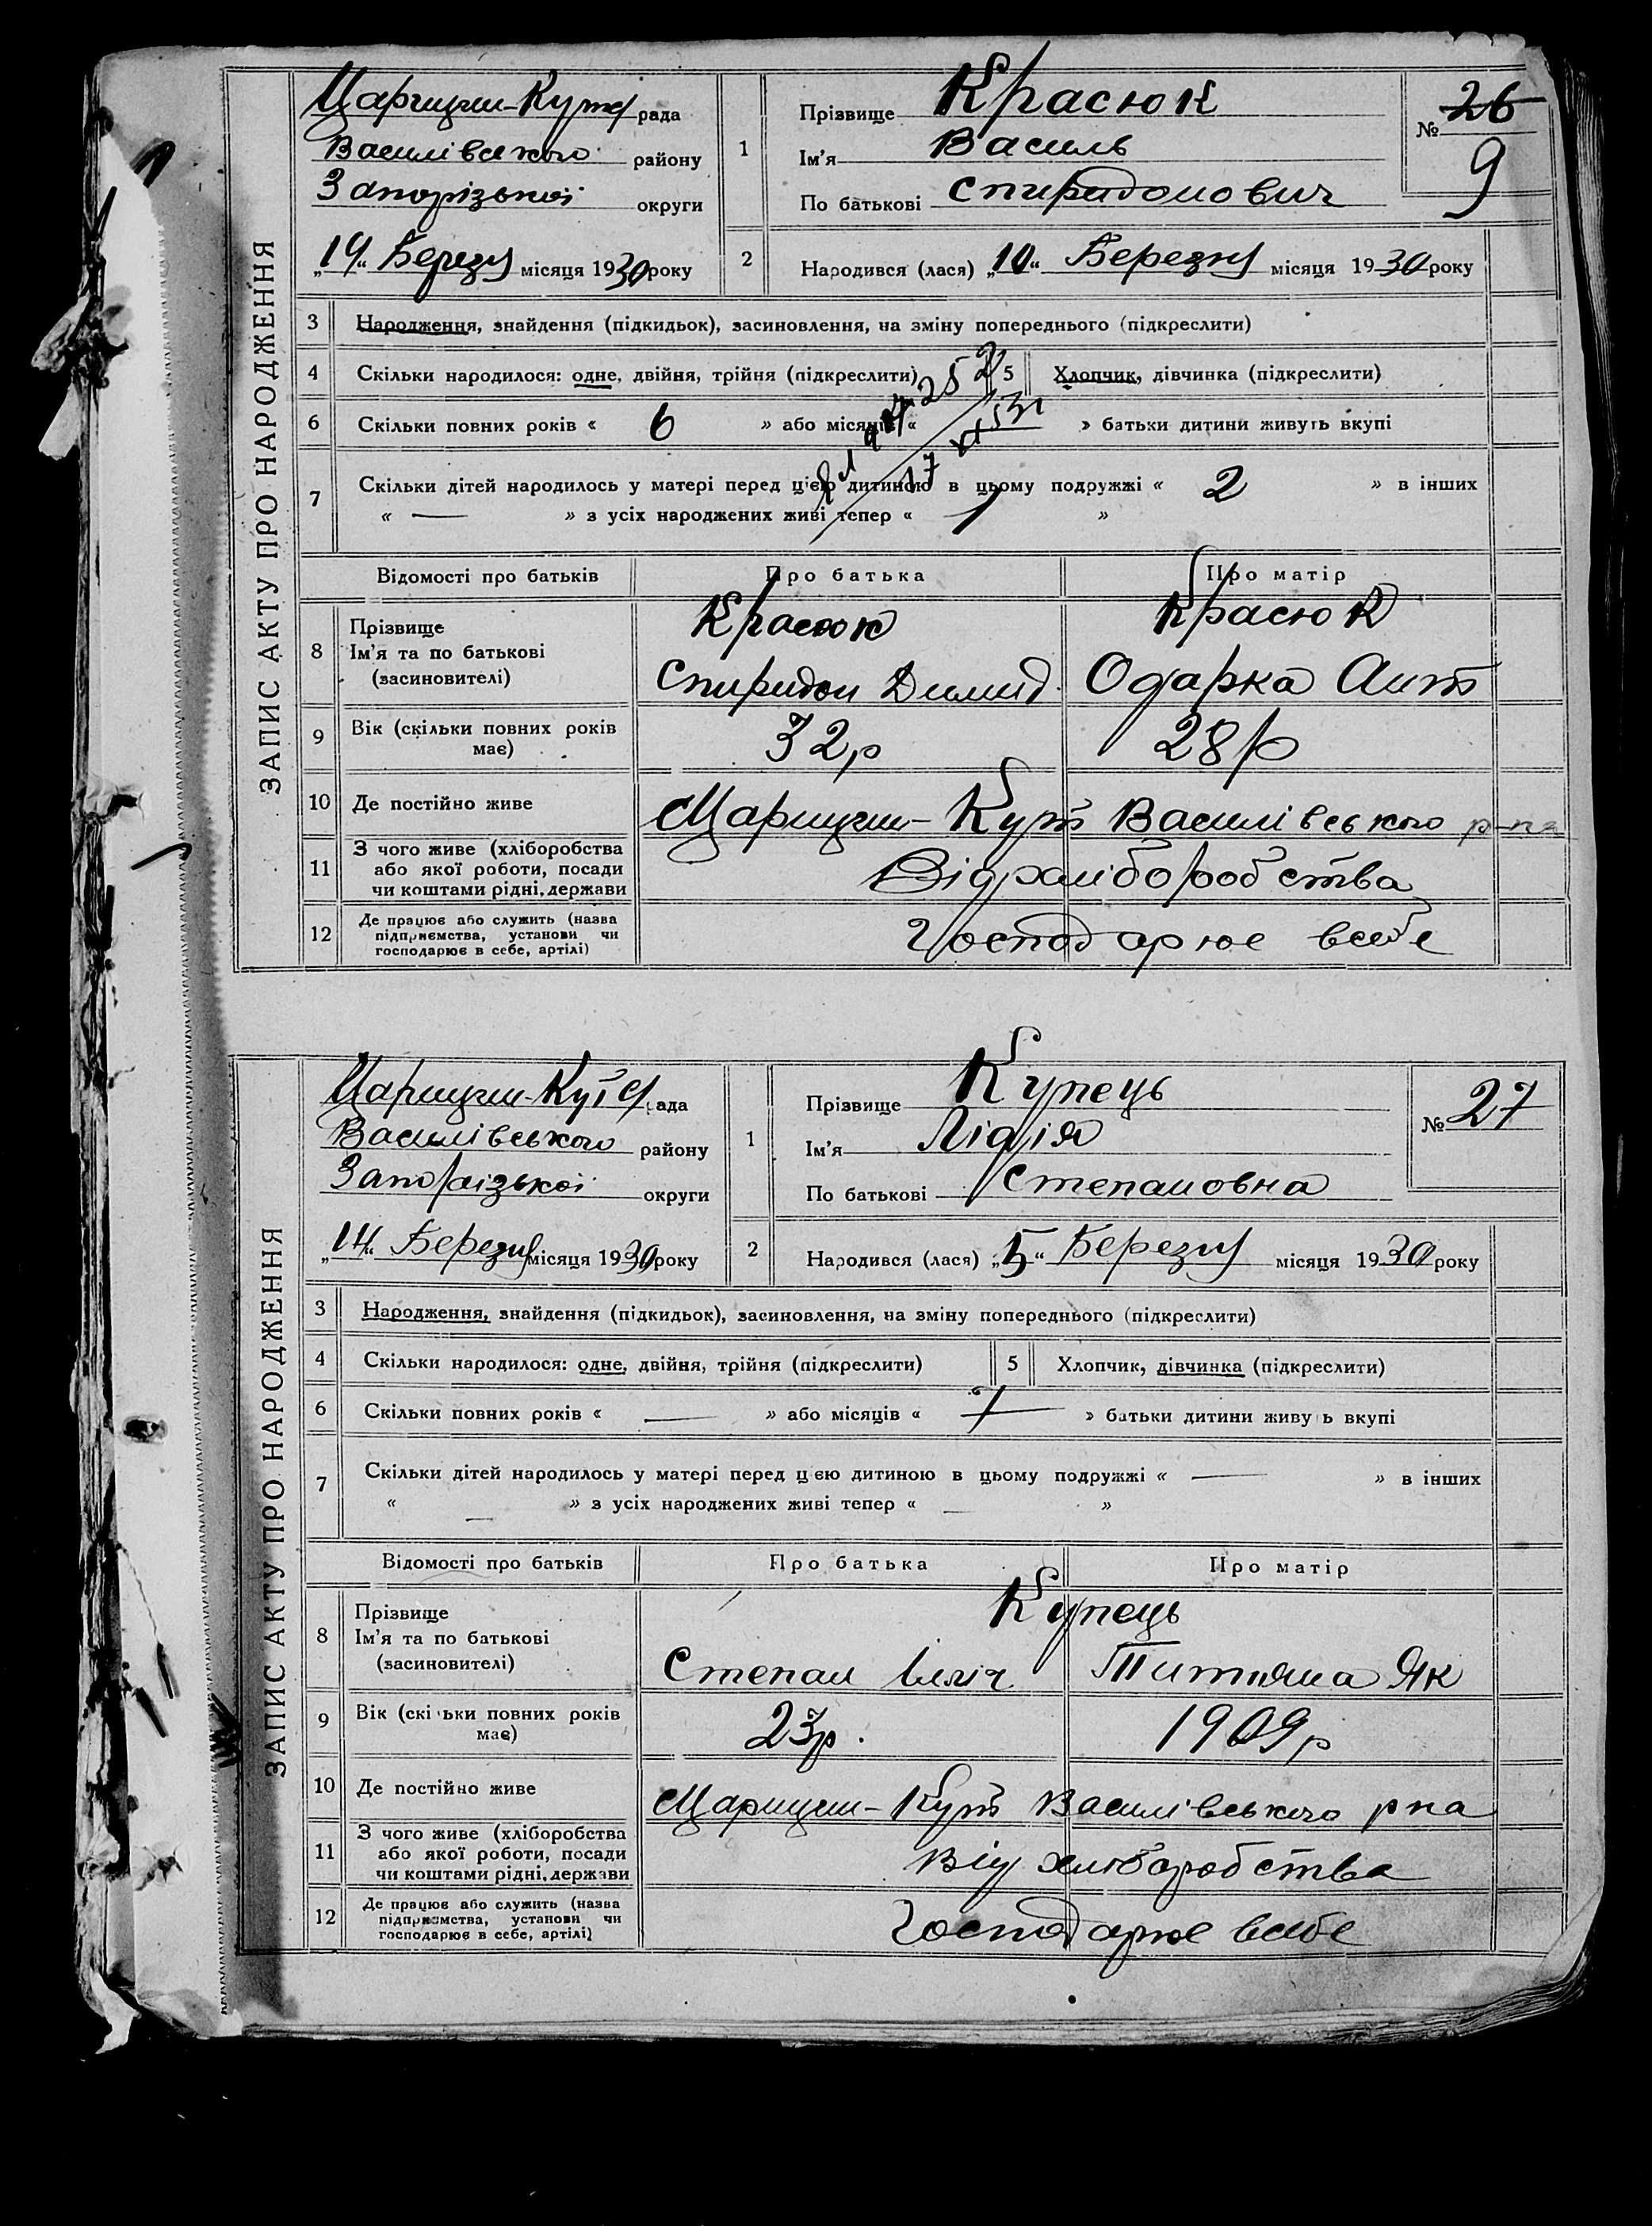 ЗАПИС АКТУ ПРО НАРОДЖЕННЯ
Царицин-Кутс рада
Василівського району
Запорізької округи
„14“ Березня місяця 1930 року
1
Прізвище Красюк
Ім'я Василь
По батькові Спиридонович
№ 26
9
2
Народився (лася) „10“ Березня місяця 1930 року
3 Народження, знайдення (підкидьок), засиновлення, на зміну попереднього (підкреслити)
4 Скільки народилося: одне, двійня, трійня (підкреслити) 5 Хлопчик, дівчинка (підкреслити)
6 Скільки повних років « 6 » або місяців « » батьки дитини живуть вкупі
7 Скільки дітей народилось у матері перед цією дитиною в цьому подружжі « 2 » в інших
« — » з усіх народжених живі тепер « 1 »
252
17
Відомості про батьків Про батька Про матір
8 Прізвище
Ім'я та по батькові
(засиновителі)
Красюк Красюк
Спиридон Димид. Одарка Ант
9 Вік (скільки повних років має) 32р 28р
10 Де постійно живе Царицин-Кут Василівського р-на
11 З чого живе (хліборобства
або якої роботи, посади
чи коштами рідні, держави
Від хліборобства
12 Де працює або служить (назва
підприємства, установи чи
господарює в себе, артілі)
Господарює в себе
ЗАПИС АКТУ ПРО НАРОДЖЕННЯ
Царицин-Кутс рада
Василівського району
Запорізької округи
„14“ Березня місяця 1930 року
1
Прізвище Купець
Ім'я Лідія
По батькові Степановна
№ 27
2
Народився (лася) „5“ Березня місяця 1930 року
3 Народження, знайдення (підкидьок), засиновлення, на зміну попереднього (підкреслити)
4 Скільки народилося: одне, двійня, трійня (підкреслити) 5 Хлопчик, дівчинка (підкреслити)
6 Скільки повних років « — » або місяців « 7 » батьки дитини живуть вкупі
7 Скільки дітей народилось у матері перед цією дитиною в цьому подружжі « — » в інших
« — » з усіх народжених живі тепер « — »
Відомості про батьків Про батька Про матір
8 Прізвище
Ім'я та по батькові
(засиновителі)
Купець
Степан Ілліч Титяна Як
9 Вік (скільки повних років має) 23р. 1909р
10 Де постійно живе Царицин-Кут Василівського рна
11 З чого живе (хліборобства
або якої роботи, посади
чи коштами рідні, держави
Від хліборобства
12 Де працює або служить (назва
підприємства, установи чи
господарює в себе, артілі)
Господарює в себе